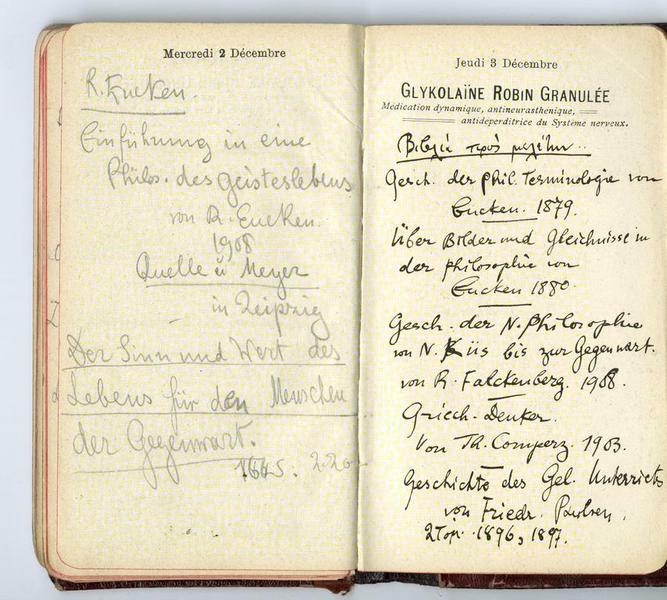 Mercredi 2 Décembre
R. Eucken.
Einführung in eine
Philos. des Geisteslebens
von R. Eucken.
1908
Quelle u Meyer
in Leipzig
Der Sinn und Wert des
Lebens für den Menschen
der Gegenwart.
S. 2.20
Jeudi 3 Décembre
GLYKOLAÏNE ROBIN GRANULÉE
Médication dynamique, antineurasthénique,
antideperditrice du Système nerveux.
Βιβλία πρὸς μελέτην..
Gesch. der phil. Terminologie von
Eucken. 1879.
Über Bilder und Gleichnisse in
der philosophie von
Eucken 1880.
Gesch. der N. Philosophie
von N. Küs bis zur Gegenwart.
von R. Falckenberg. 1908.
Griech. Denker.
Von Th. Gomperz. 1903.
Geschichte des Gel. Unterrichts
von Friedr. Paulsen,
2 Τομ. 1896, 1897.